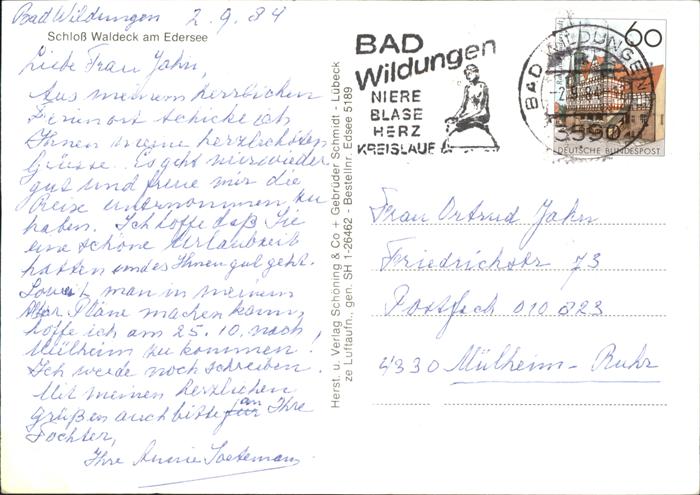 Bad Wildungen 2.9.84
Schloß Waldeck am Edersee
Liebe Frau Jahn,
Aus meinem herrlichen
Ferienort schicke ich
Ihnen meine herzlichsten
Grüsse. Es geht mir wieder
gut und freue mir die
Reise unternommen zu
haben. Ich hoffe daß Sie
eine schöne Urlaubzeit
hatten und es Ihnen gut geht.
Soweit man in meinem
Alter Pläne machen kann,
hoffe ich am 25.10. nach
Mülheim zu kommen.
Ich werde noch schreiben.
Mit meinen herzlichen
Grüßen auch bitte an Ihre
Tochter,
Ihre Annie
Herst. u. Verlag Schöning & Co + Gebrüder Schmidt - Lübeck
ze Luftaufn., gen. SH 1-26462 - Bestellnr. Edsee 5189
BAD
Wildungen
NIERE
BLASE
HERZ
KREISLAUF
BAD WILDUNGEN
-2.9.84
3590
60
DEUTSCHE BUNDESPOST
Frau Ortrud Jahn
Friedrichstr 73
Postfach 010 823
4330 Mülheim-Ruhr